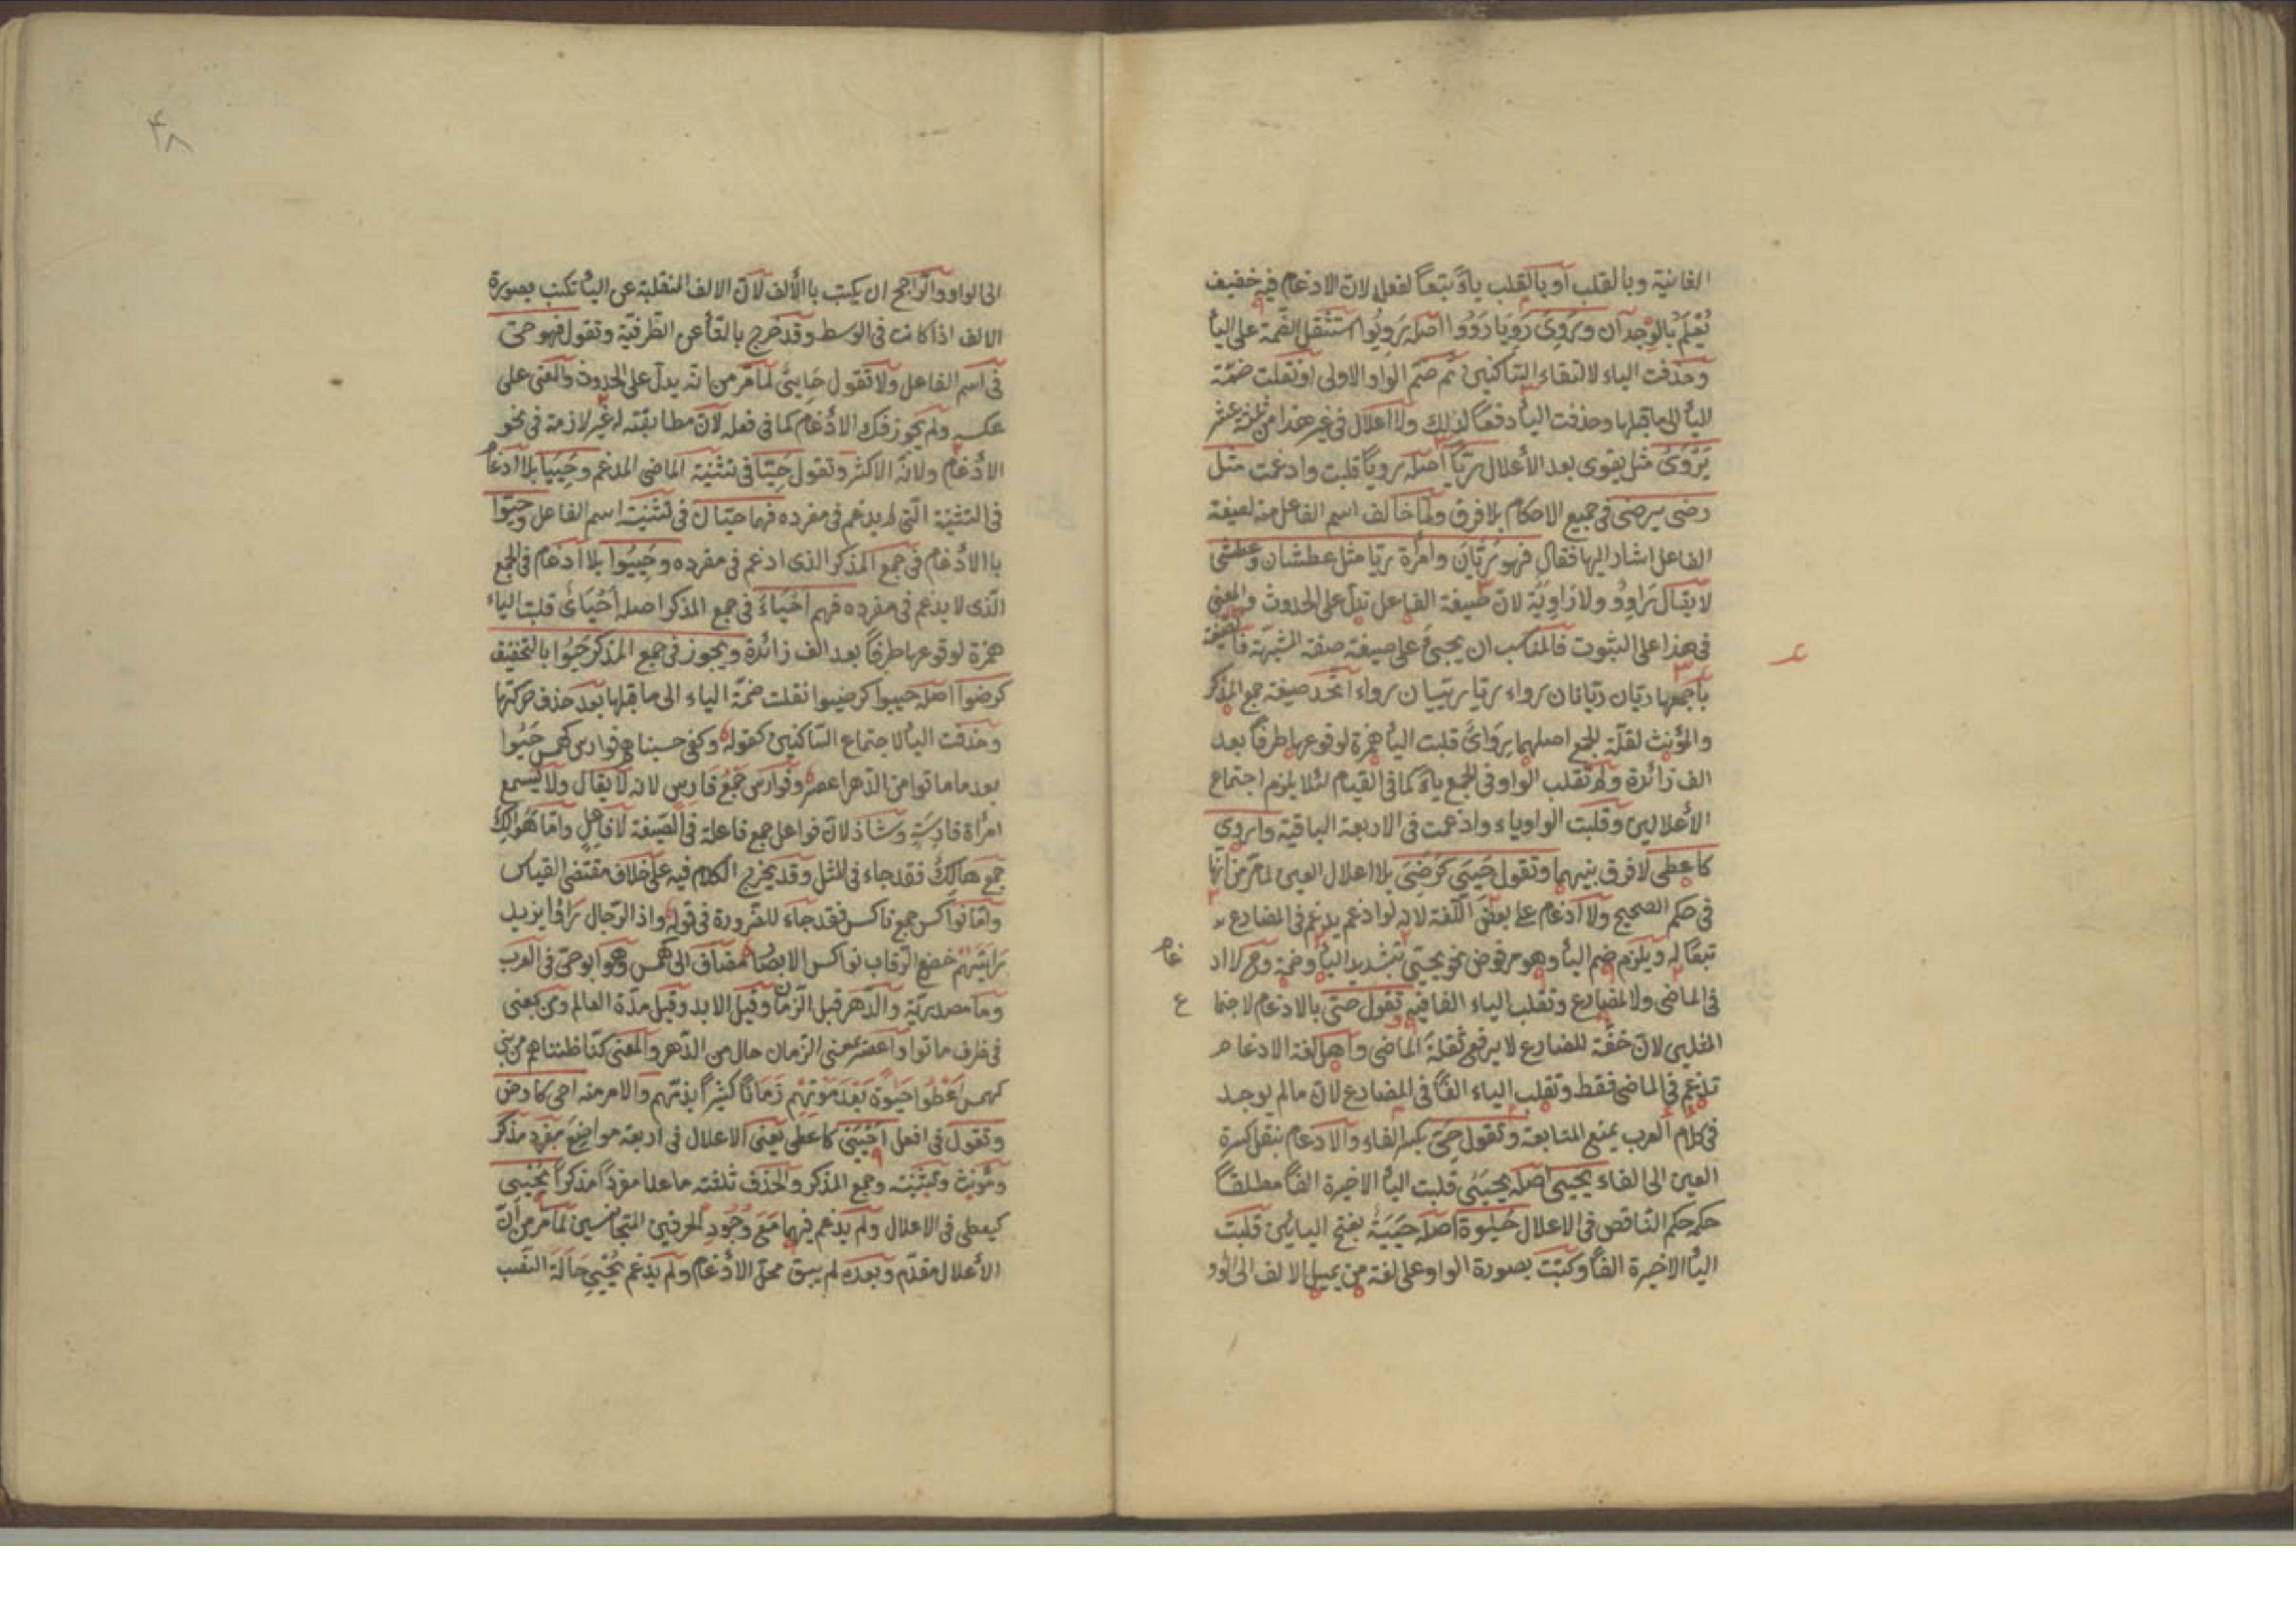 الثانية وبالقلب أو بالقلب ياءً تبعاً لفعله لان الادغام فيه خفيف
يُعْلَم بالوجدان ويَرْوِى رَوَيَا رَوَوْا اصله يَرْوِيُوا استثقل الضّمة على الياء
وحذفت الياء لالتقاء السّاكنين ثم ضمّ الواو الاولى او نقلت ضمّة
الياء الى ماقبلها وحذفت الياء دفعاً لذلك ولا اعلال فى غير هذا من ثلثة عشر
يَرْوَىُ مثل يقوى بعد الأعلال ريّاً اصله روياً قلبت وادغمت مثل
رضى يرضى فى جميع الاحكام بلا فرق ولمّا خالف اسم الفاعل منه لصيغة
الفاعل اشار اليها فقال فهو رَيّانَ وامرأة ريّا مثل عطشان وعطشى
لا يقال رَاوٍو ولا رَاوِيَة لان صيغة الفاعل تدلّ على الحدوث والمعنى
فى هذا على الثبوت فالمناسب ان يجيئ على صيغة صفة المشبّهة فالصيغة
بأجمعها ريّان ريّانان رواء ريّا ريّيان رواء اتّحد صيغة جمع المذكر
والمؤنث لقلّة الجمع اصلهما رِوَاىٌ قلبت الياء همزة لوقوعها طرفاً بعد
الف زائدة ولم تقلب الواو فى الجمع ياءً كما فى القيام لئلا يلزم اجتماع
الأعلالين وقلبت الواو ياء وادغمت فى الاربعة الباقية واروى
كاعطى لا فرق بينهما وتقول حَيِىَ كرَضِىَ بلا اعلال العين لما مرّ من انّها
فى حكم الصحيح ولا ادغام على بعض اللّغة لانه لو ادغم يدغم فى المضارع
تبعًا له ويلزم ضم الياء وهو مرفوض نحو يحيّ بتشديد الياء وضمّه وح لا اد
غام
فى الماضى ولا المضارع وتقلب الياء الفا فيه تقول حىّ بالادغام لاجتما
ع
المثلين لان خفّة المضارع لا يرفع ثقلة الماضى واهل لغة الادغام
تدغم فى الماضى فقط وتقلب الياء الفًا فى المضارع لان مالم يوجد
فى كلام العرب يمنع المتابعة وتقول حِىّ بكسر الفاء والادغام بنقل كسرة
العين الى الفاء يحيى اصله يَحْيَىُ قلبت الياء الاخيرة الفاً مطلقاً
حكمه حكم النّاقص فى الاعلال حَيٰوة اصله حَيَيَةٌ بفتح اليائين قلبت
الياء الاخيرة الفاً وكتبت بصورة الواو على لغة من يميل الالف الى الواو
۴۸
الى الواو والرّاجح ان يكتب باالألف لانّ الالف المنقلبة عن الياء تكتب بصورة
الالف اذا كانت فى الوسط وقد خرج بالتّاء عن الطّرفيّة وتقول فهو حىّ
فى اسم الفاعل ولا تقول حَايِىٌ لما مرّ من انّه يدلّ على الحدوث والمعنى على
عكسه ولم يجوز فك الادغام كما فى فعله لانّ مطابقته له غير لازمة فى نحو
الادغام ولانّه الاكثر وتقول حَيّا فى تثنية الماضى المدغم وحَيِيَا بلا ادغام
فى التثنية الّتى لم يدغم فى مفرده فهما حيّان فى تثنية اسم الفاعل وحَيّوا
باالأدغام فى جمع المذكر الذى ادغم فى مفرده وحَيِيُوا بلا ادغام فى الجمع
الّذى لا يدغم فى مفرده فهم أَحْيَاءٌ فى جمع المذكر اصله أَحْيَاىٌ قلبت الياء
همزة لوقوعها طرفاً بعد الف زائدة ويجوز فى جمع المذكر حَيُوا بالتخفيف
كرضوا اصله حييوا كرضيوا نقلت ضمّة الياء الى ماقبلها بعد حذف حركتها
وحذفت الياء لاجتماع السّاكنين كقوله وكنّى حسبناهم فوارس كهمس حَيُوا
بعد ما ماتوا من الدّهر اعصرا وفوارس جَمْعُ فارس لانه لا يقال ولا يسمع
امرأة فارسة وشاذ لان فواعل جمع فاعلة فى الصّيغة لا فاعل وامّا هَوَالك
جمع هالكُ فقد جاء فى المثل وقد يخرج الكلام فيه على خلاف مقتضى القياس
وامّا نواكس جمع ناكس فقد جاء للضّرورة فى قوله واذا الرّجال رَاوا يزيد
رَايتَهُمْ خضع الرّقاب نواكس الابصار مضاف الى كهمس وهو ابوحىّ فى العرب
وما مصدريّة والدّهر قيل الزمان وقيل الابد وقيل مدّة العالم وى بمعنى
فى ظرف ماتوا واعصر بمعنى الزمان حال من الدّهر والمعنى كنّا ظننّاهم من بنى
كهمس اَعْطَوا حَيٰوة بَعْدَ مَوْتِهِمْ زَمَانًا كثيراً بذمّهم والامر منه احى كارض
وتقول فى افعل اَحْيَىَ كاعطى يعنى الاعلال فى اربعة مواضع مفرد مذكر
ومؤنث وتثنيته وجمع المذكر والحذف ثلثته ماعدا مفرداً مذكراً يُحْيِى
كيعطى فى الاعلال ولم يدغم فيها مَعَ وُجُودِ الحرفين المتجانسين لما مرّ من انّ
الأعلال مقدّم وبعده لم يبق محلّ الادغام ولم يدغم يُحْيِىَ حَالَةَ النّصب